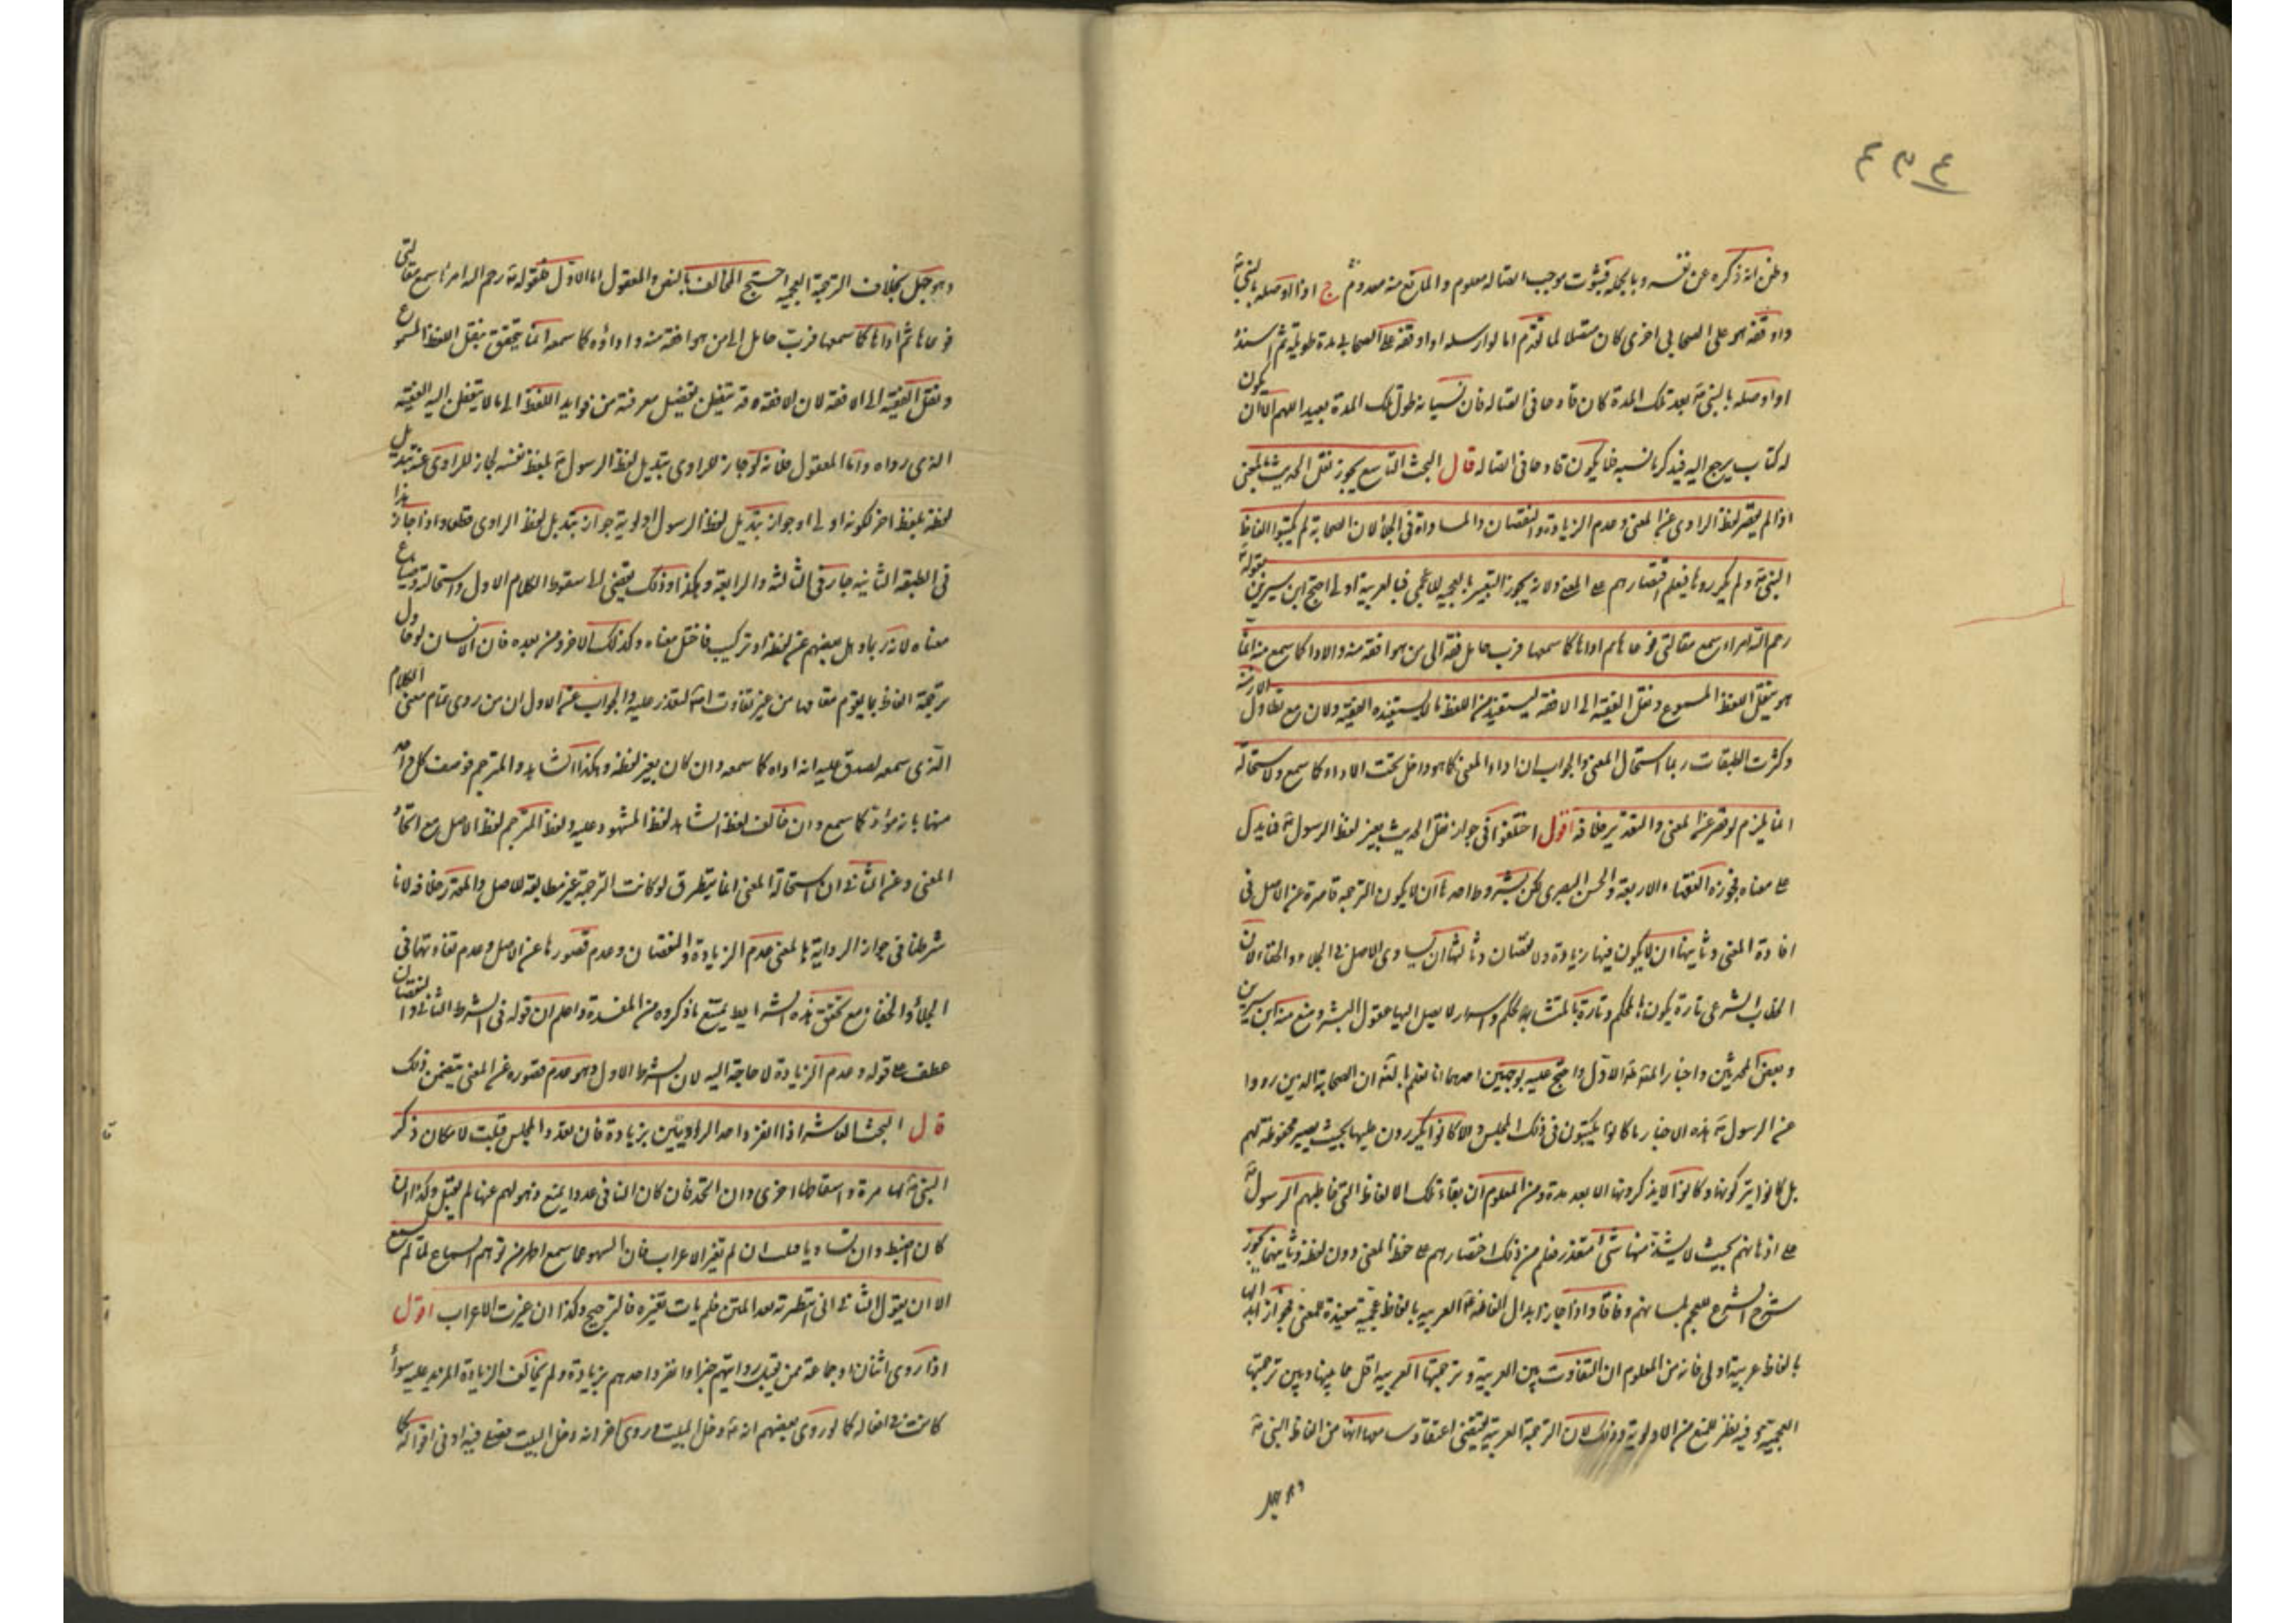 ٤٥٤
وظن انه ذكره عن نفسه وبالجملة فثبوت موجب اتصاله معلوم والمانع منه معدوم ج اذا اوصله بالنبي ص
واوقفه هو على الصحابي اخرى كان متصلا لما تقدم اما لو ارسله او اوقفه على الصحابي مدة طويلة ثم اسنده
او اوصله بالنبي ص بعد تلك المدة كان قادحا في اتصاله فان نسيانه طول تلك المدة بعيد اللهم الا ان يكون
له كتاب يرجع اليه فيذكر ما نسيه فلا يكون قادحا في اتصاله قال البحث التاسع يجوز نقل الحديث بالمعنى
اذا لم يقصر لفظ الراوي عن المعنى وعدم الزيادة والنقصان والمساواة في الجلاء لان الصحابة لم يكتبوا الفاظ
النبي ص ولم يكرروها فيعلم اقتصارهم على المعنى ولانه يجوز التعبير بالعجمية للاعجمي فبالعربية اولى احتج ابن سيرين بقوله ص
رحم الله امرءا سمع مقالتي فوعاها ثم اداها كما سمعها فرب حامل فقه الى من هو افقه منه والاداء كما سمع منه انما
هو بنقل اللفظ المسموع ونقل الفقيه الى الافقه ليستفيد من اللفظ ما لا يستفيده الفقيه ولان مع تطاول الازمنة
وكثرت الطبقات ربما استحال المعنى والجواب ان اداء المعنى كما هو داخل تحت الاداء كما سمع والاستحالة
انما يلزم لو قصر عن المعنى والتقدير خلافه اقول اختلفوا في جواز نقل الحديث بغير لفظ الرسول ص فما يدل
على معناه فجوزه الفقهاء الاربعة والحسن البصري لكن بشروط احدها ان لا يكون الترجمة قاصرة عن الاصل في
افادة المعنى وثانيها ان لا يكون فيها زيادة ولا نقصان وثالثها ان يساوى الاصل في الجلاء والخفاء لان
الخطاب الشرعي تارة يكون بالمحكم وتارة بالمتشابه لحكم واسرار لا يصل اليها عقول البشر ومنع منه ابن سيرين
وبعض المحدثين واختار المص الاول واحتج عليه بوجهين احدهما انا نعلم بالضرورة ان الصحابة الذين رووا
عن الرسول ص هذه الاخبار ما كانوا يكتبون في ذلك المجلس ولا كانوا يكررون عليها بحيث يصير محفوظة لهم
بل كانوا يتركونها وكانوا لا يذكرونها الا بعد مدة ومن المعلوم ان بقاء تلك الالفاظ التي خاطبهم الرسول ص
على اذهانهم بحيث لا يشذ منها شئ متعذر فعلم من ذلك اقتصارهم على حفظ المعنى دون لفظه وثانيهما يجوز
شرح الشرع للعجم بلسانهم وفاقا واذا جاز ابدال الفاظه ص العربية بالفاظ عجمية مفيدة للمعنى فجواز ابدالها
بالفاظ عربية اولى فانه من المعلوم ان التفاوت بين العربية وترجمتها العربية اقل مما بينها وبين ترجمتها
العجمية وفيه نظر للمنع من الاولوية وذلك لان الترجمة العربية يقتضي اعتقاد سامعها انها من الفاظ النبي ص
وهو جهل بخلاف الترجمة العجمية احتج المخالف بالنص والمعقول اما الاول فقوله ص رحم الله امرءا سمع مقالتي
فوعاها ثم اداها كما سمعها فرب حامل الى من هو افقه منه واداؤه كما سمعه انما يتحقق بنقل اللفظ المسموع
ونقل الفقيه الى الافقه لان الافقه قد يتفطن بفضل معرفته من فوايد اللفظ الى ما لا يتفطن اليه الفقيه
الذي رواه واما المعقول فلانه لو جاز للراوى تبديل لفظ الرسول ص بلفظ نفسه لجاز للراوى عنه تبديل
لفظه بلفظ اخر لكونه اولى اذ جواز تبديل لفظ الرسول اولوية جواز تبديل لفظ الراوى قطعا واذا جاز هذا
في الطبقة الثانية جاز في الثالثة والرابعة وهكذا وذلك يقتضي الى سقوط الكلام الاول واستحالة وضياع
معناه لانه ربما ذهل بعضهم عن لفظ او تركيب فاختل معناه وكذلك الاخر ومن بعده فان الانسان لو حاول
ترجمة الفاظ بما يقوم مقامها من غير تفاوت اصلا لتعذر عليه والجواب عن الاول ان من روى تمام معنى الكلام
الذي سمعه لصدق عليه انه اداه كما سمعه وان كان بغير لفظه وهكذا الشاهد والمترجم فوصف كل واحد
منهما بانه مؤد كما سمع وان خالف لفظ الشاهد لفظ المشهود عليه ولفظ المترجم لفظ الاصل مع اتحاد
المعنى وعن الثاني ان استحالة المعنى انما يتطرق لو كانت الترجمة غير مطابقة للاصل والمقدر خلافه لانا
شرطنا في جواز الرواية بالمعنى عدم الزيادة والنقصان وعدم قصورها عن الاصل وعدم تفاوتهما في
الجلاء والخفاء مع تحقق هذه الشرايط يمتنع ما ذكروه من المفسدة واعلم ان قوله في الشرط الثاني والنقصان
عطف على قوله وعدم الزيادة لا حاجة اليه لان الشرط الاول وهو عدم قصوره عن المعنى يتضمن ذلك
قال البحث العاشر اذا انفرد احد الراويين بزيادة فان تعدد المجلس قبلت لامكان ذكر
النبي ص لها مرة واسقاطها اخرى وان اتحد فان كان النافي عددا يمتنع ذهولهم عنها لم يقبل وكذا ان
كان اضبط وان تساويا قبلت ان لم تغير الاعراب فان السهو عما سمع اظهر من توهم السماع لما لم يسمع
الا ان يقول الثاني اني انتظرته بعد المتن فلم يات بغيره فالترجيح وكذا ان غيرت الاعراب اقول
اذا روى اثنان او جماعة ممن يقبل روايتهم خبرا وانفرد احدهم بزيادة ولم يخالف الزيادة المزيد عليه سواء
كانت في افعاله كما لو روى بعضهم انه ص دخل البيت وروى اخر انه دخل البيت فصلى فيه او في اقواله كما